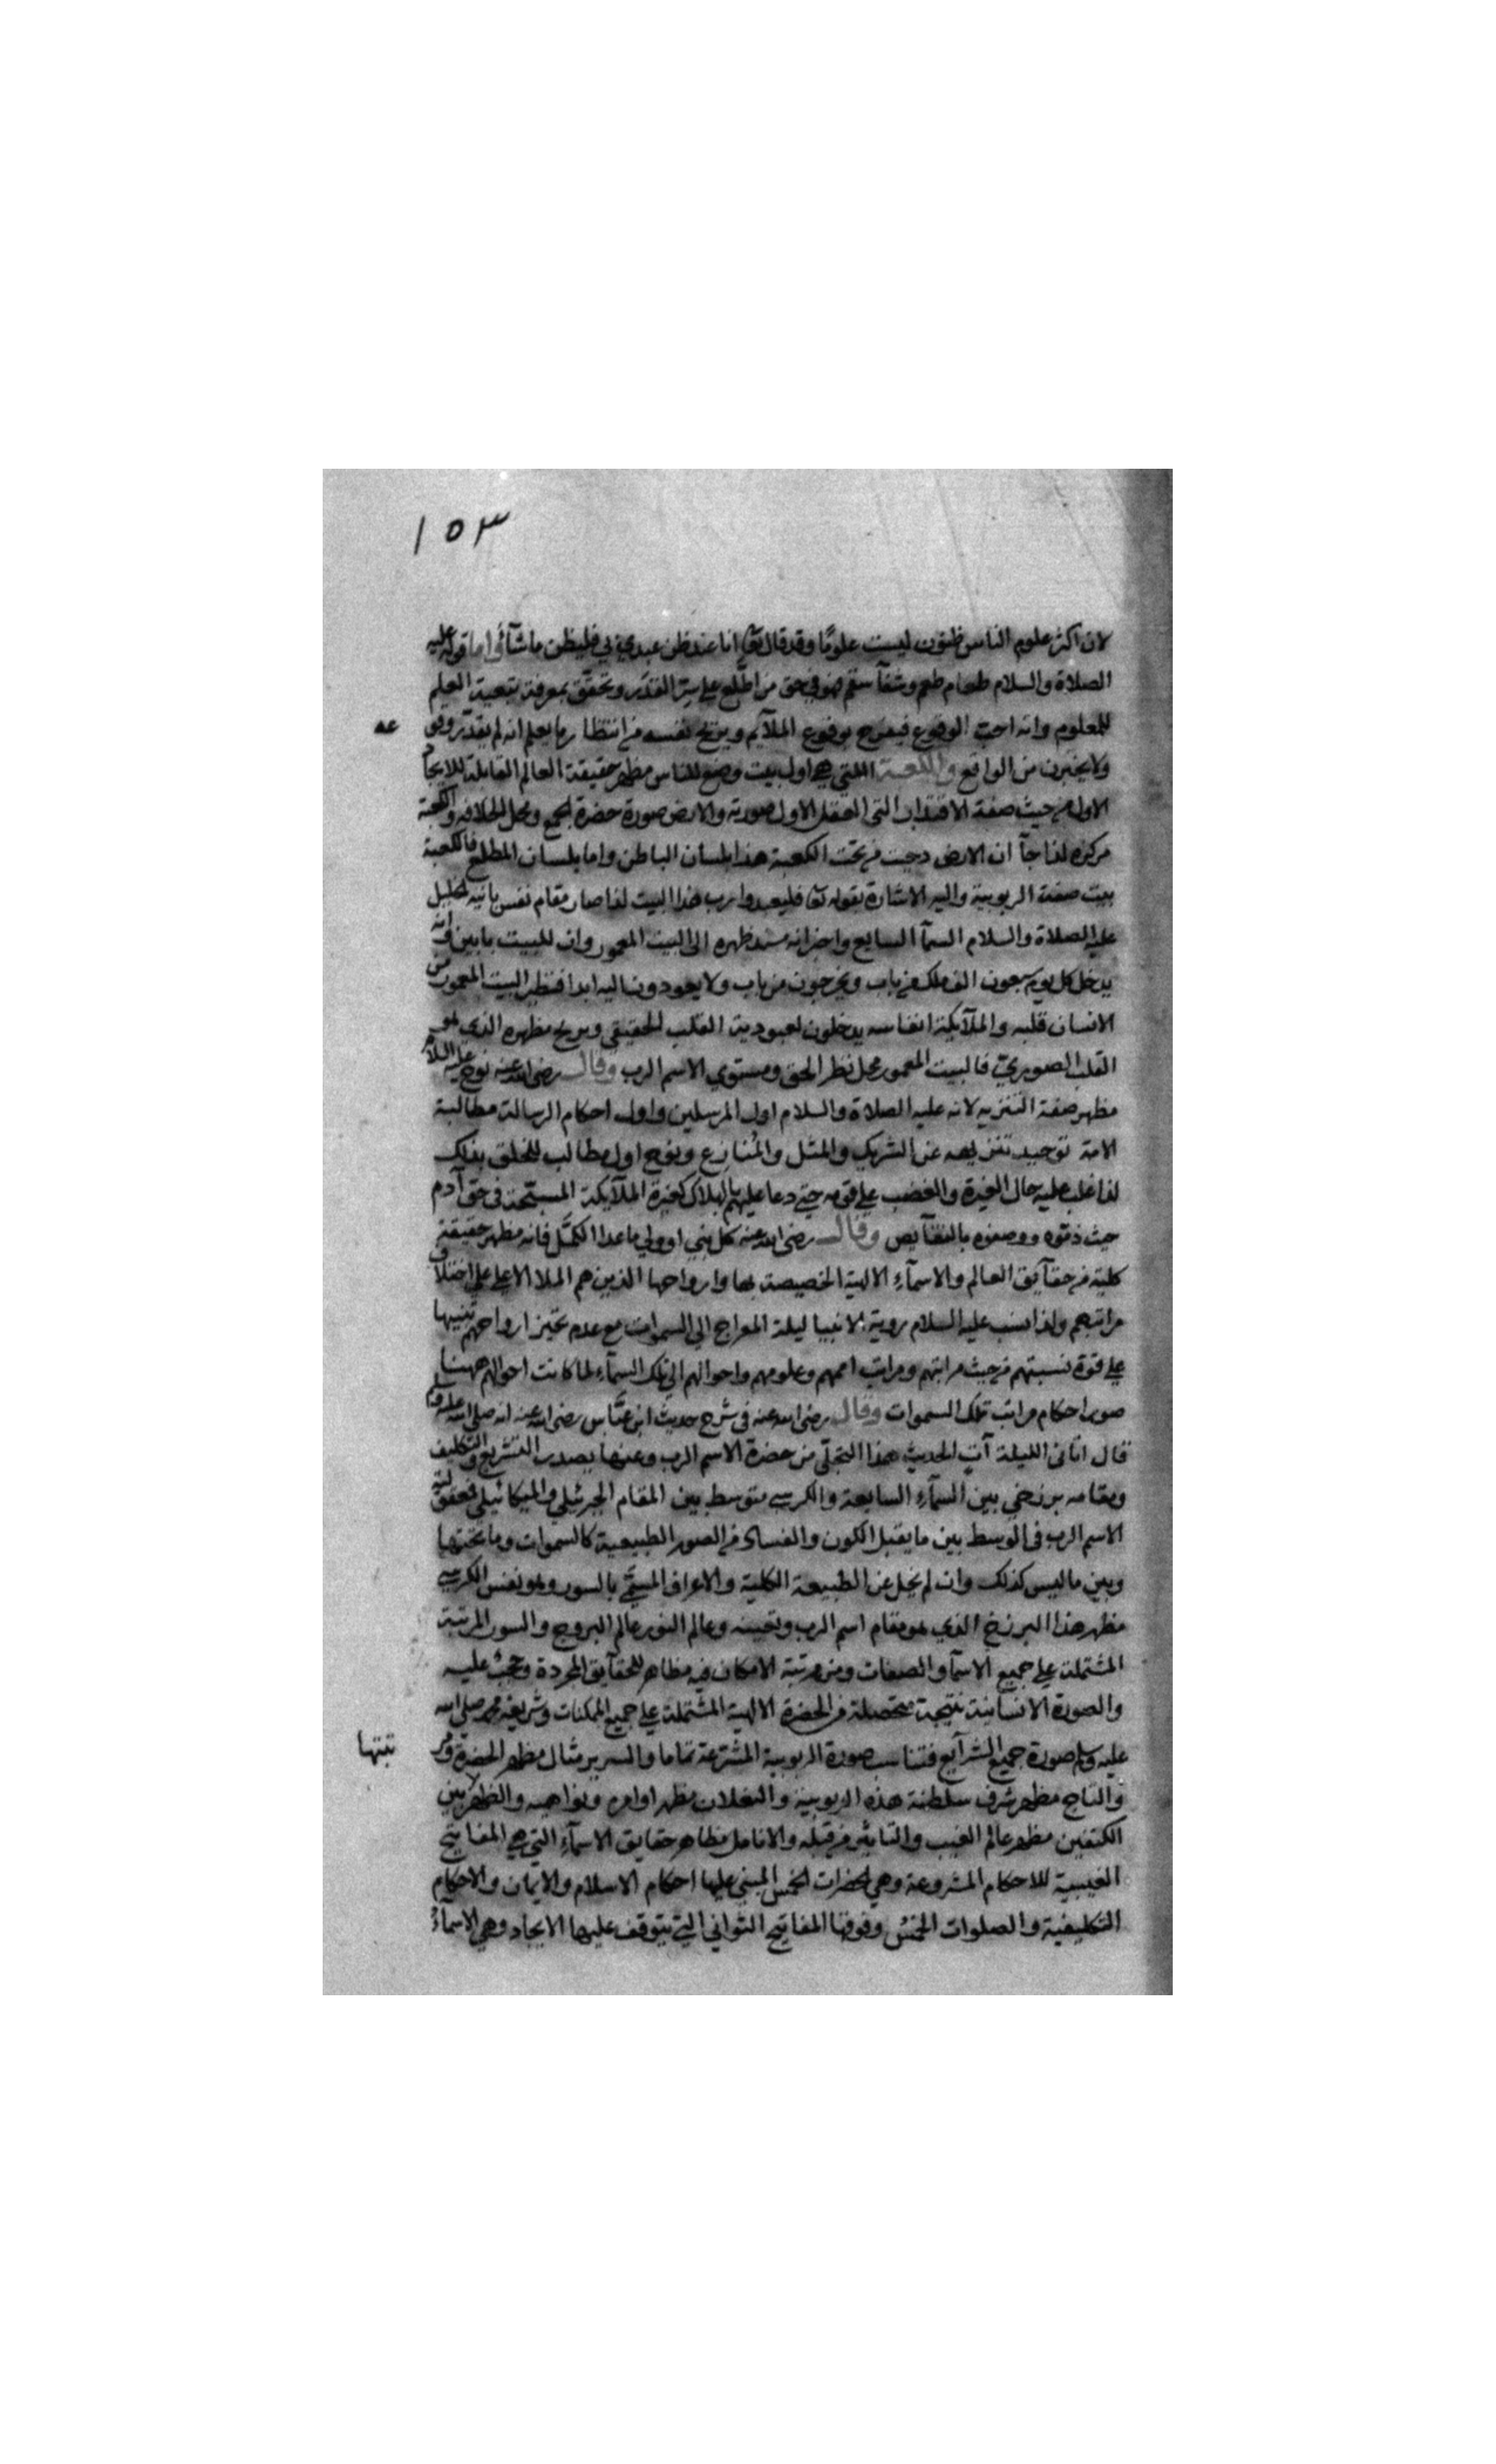 ١٥٣
لان اكثر علوم الناس ظنون ليست علومًا وقد قال تعالى انا عند ظن عبدي بي فليظن ما شآء واما قوله عليه
الصلاة والسلام طعام طعم وشفآ سقم فهو في حق من اطّلع على سرّ القدَر وتحقّق بمعرفة تبعية العلم
للمعلوم وانه واجب الوقوع فيفرح بوقوع الملآيم ويريح نفسه من انتظار ما يعلم انه لم يقدّر وقو
عه
ولا يحزن من الواقع والكعبة التي هي اول بيت وضع للناس مظهر حقيقة العالم القابلة للايجاد
الاول من حيث صفة الاقتدار التى العقل الاول صورته والارض صورة حضرة الجمع ومحل الخلافه والكعبة
مركزه لذا جآ ان الارض دحيت من تحت الكعبة هذا بلسان الباطن واما بلسان المطلع فالكعبة
بيت صفة الربوبية واليه الاشارة بقوله تعا فليعبدوا رب هذا البيت لذا صار مقام نفس بانيه الخليل
عليه الصلاة والسلام السمآ السابع واخبر انه مسند ظهره الى البيت المعمور وان للبيت بابين وانه
يدخل كل يوم سبعون الف ملك من باب ويخرجون من باب ولا يعودون اليه ابدا فنظير البيت المعمور من
الانسان قلبه والملآيكة انفاسه يدخلون لعبودية القلب الحقيقي وبريح مظهره الذي هو
القلب الصنوبري فالبيت المعمور محل نظر الحق ومستوي الاسم الرب وقال رضى الله عنه نوح عليه السلام
مظهر صفة التنزيه لانه عليه الصلاة والسلام اول المرسلين واول احكام الرسالة مطالبة
الامة توحيد تنزيهه عن الشريك والمثل والمُنازع ونوح اول مطالب للخلق بذلك
لذا غلب عليه حال الغيرة والغضب على قومه حتى دعا عليهم بالهلاك كغيرة الملآيكة المسبّحة في حق آدم
حيث ذمّوه ووصفوه بالنقآيص وقال رضى الله عنه كل نبي او ولي ما عدا الكمّل فانه مظهر حقيقة
كلية من حقآيق العالم والاسمآء الالهية الخصيصة بها وارواحها الذين هم الملا الاعلى على اختلاف
مراتبهم ولذا نسب عليه السلام روية الانبيا ليلة المعراج الى السموات مع عدم تحيز ارواحهم تنبيها
على قوة نسبتهم من حيث مراتبهم ومراتب اممهم وعلومهم واحوالهم الى تلك السمآء لما كانت احوالهم ههنا
صور احكام مراتب تلك السموات وقال رضى الله عنه فى شرح حديث ابن عبّاس رضى الله عنه انه صلى الله عليه وسلم
قال اتانى الليلة آتٍ الحديث هذا التجلّي من حضرة الاسم الرب وعنها يصدر التشريع والتكليف
ومقامه برزخي بين السمآء السابعة والكرسي متوسط بين المقام الجبرئيلي والميكائيلي
الاسم الرب في الوسط بين ما يقبل الكون والفساد من الصور الطبيعية كالسموات وما تحتها
وبين ما ليس كذلك وان لم يخل عن الطبيعة الكلية والاعراف المسمّى بالسور وهو نفس الكرسي
مظهر هذا البرزخ الذي هو مقام اسم الرب وتعينه وعالم النور عالم البروج والسور المرتبة
المشتملة على جميع الاسمآ والصفات ومن مرتبة الامكان فيه مظاهر للحقآيق المجردة وحجب عليه
والصورة الانسانية نتيجة متحصلة من الحضرة الالهية المشتملة على جميع الممكنات وشريعة محمد صلى الله
عليه وسلم صورة جميع الشرآيع فتناسب صورة الربوبية المشرّعة تماما والسرير مثال مظهر الحضرة ومر
تبتها
والتاج مظهر شرف سلطنة هذه الربوبية والنعلان مظهر اوامره ونواهيه والظهر بين
الكتفين مظهر عالم الغيب والتاثير من قبله والانامل مظاهر حقايق الاسمآء التي هي المفاتيح
الغيبية للاحكام المشروعة وهي الحضرات الخمس المبني عليها احكام الاسلام والايمان والاحكام
التكليفية والصلوات الخمس وفوقها المفاتيح الثواني التي يتوقف عليها الايجاد وهي الاسمآء